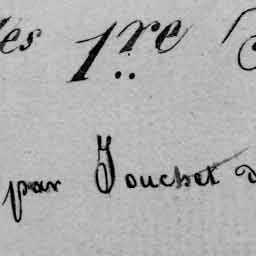 les 1re
par Jouchet d